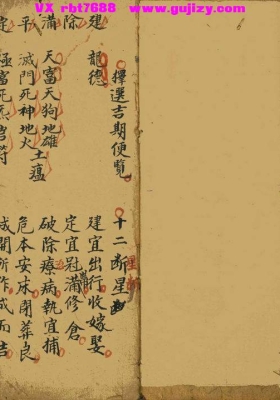 VX rbt7688 www.gujizy.com
擇選吉期便覽
建 龍德
除
滿 天富天狗地雄土瘟
平 滅門死神地火
定
十二断星
建宜出行收嫁娶
定宜冠滿修倉
破除療病執宜捕
危本安床閉葬良
成開所作成而吉